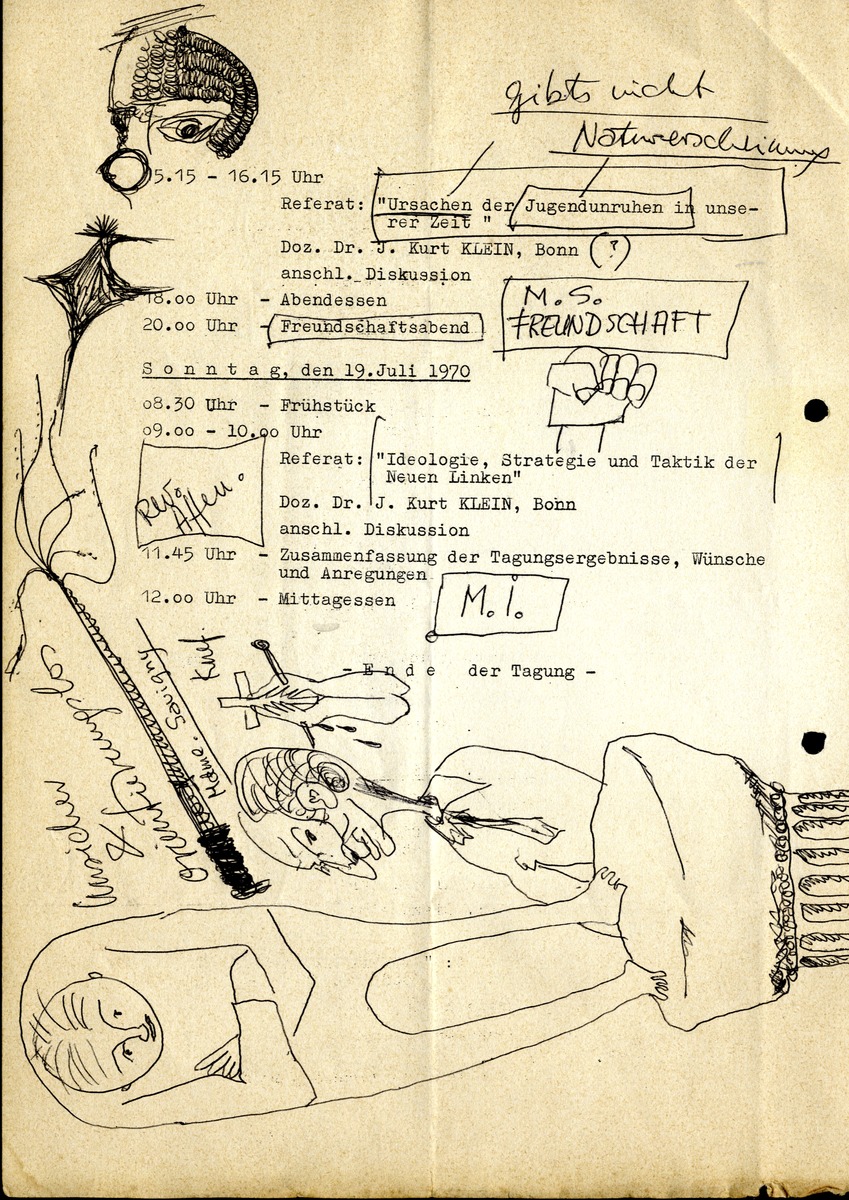 gibts nicht
Naturerscheinung
15.15 - 16.15 Uhr
Referat: "Ursachen der Jugendunruhen in unse-
rer Zeit "
Doz. Dr. J. Kurt KLEIN, Bonn (?)
anschl. Diskussion
18.oo Uhr - Abendessen
M. S.
20.oo Uhr - Freundschaftsabend
FREUNDSCHAFT
S o n n t a g, den 19.Juli 1970
o8.30 Uhr - Frühstück
o9.oo - 10.oo Uhr
Referat: "Ideologie, Strategie und Taktik der
Neuen Linken"
Rev.
Doz. Dr. J. Kurt KLEIN, Bonn
anschl. Diskussion
11.45 Uhr - Zusammenfassung der Tagungsergebnisse, Wünsche
und Anregungen
M. i.
12.oo Uhr - Mittagessen
- E n d e der Tagung -
Unsicher
& Orientierungslos
Savigny